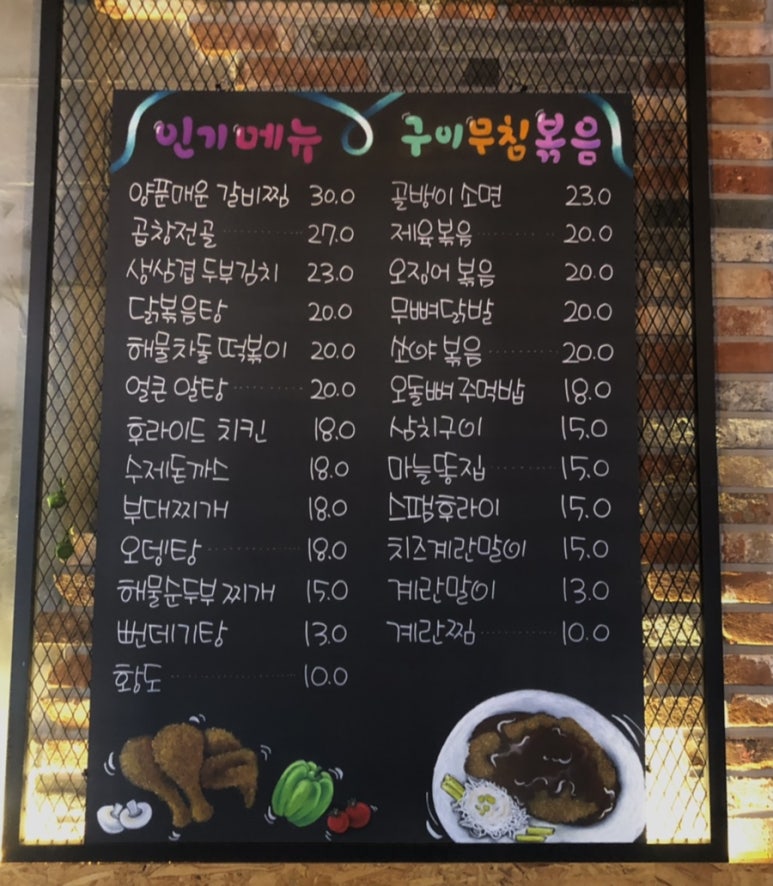 인기메뉴
양푼매운 갈비찜 30.0
곱창전골 27.0
생삼겹 두부김치 23.0
닭볶음탕 20.0
해물차돌 떡볶이 20.0
얼큰 알탕 20.0
후라이드 치킨 18.0
수제돈까스 18.0
부대찌개 18.0
오뎅탕 18.0
해물순두부 찌개 15.0
뻔데기탕 13.0
황도 10.0
구이무침볶음
골뱅이 소면 23.0
제육볶음 20.0
오징어 볶음 20.0
무뼈닭발 20.0
산야 볶음 20.0
오돌뼈 주먹밥 18.0
삼치구이 15.0
마늘똥집 15.0
스팸후라이 15.0
치즈계란말이 15.0
계란말이 13.0
계란찜 10.0